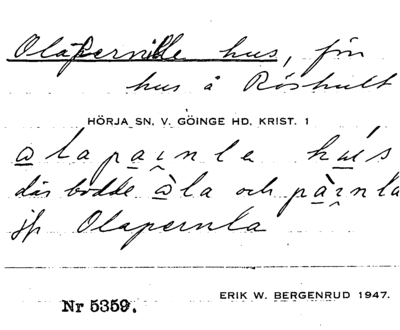 Olapernille hus, för
hus å Röshult
HÖRJA SN. V. GÖINGE HD. KRIST. 1
ɑlapaɪnla hus
där bodde ɑ̀la och pàɪnla
jfr Olapernla
ERIK W. BERGENRUD 1947.
Nr 5359.